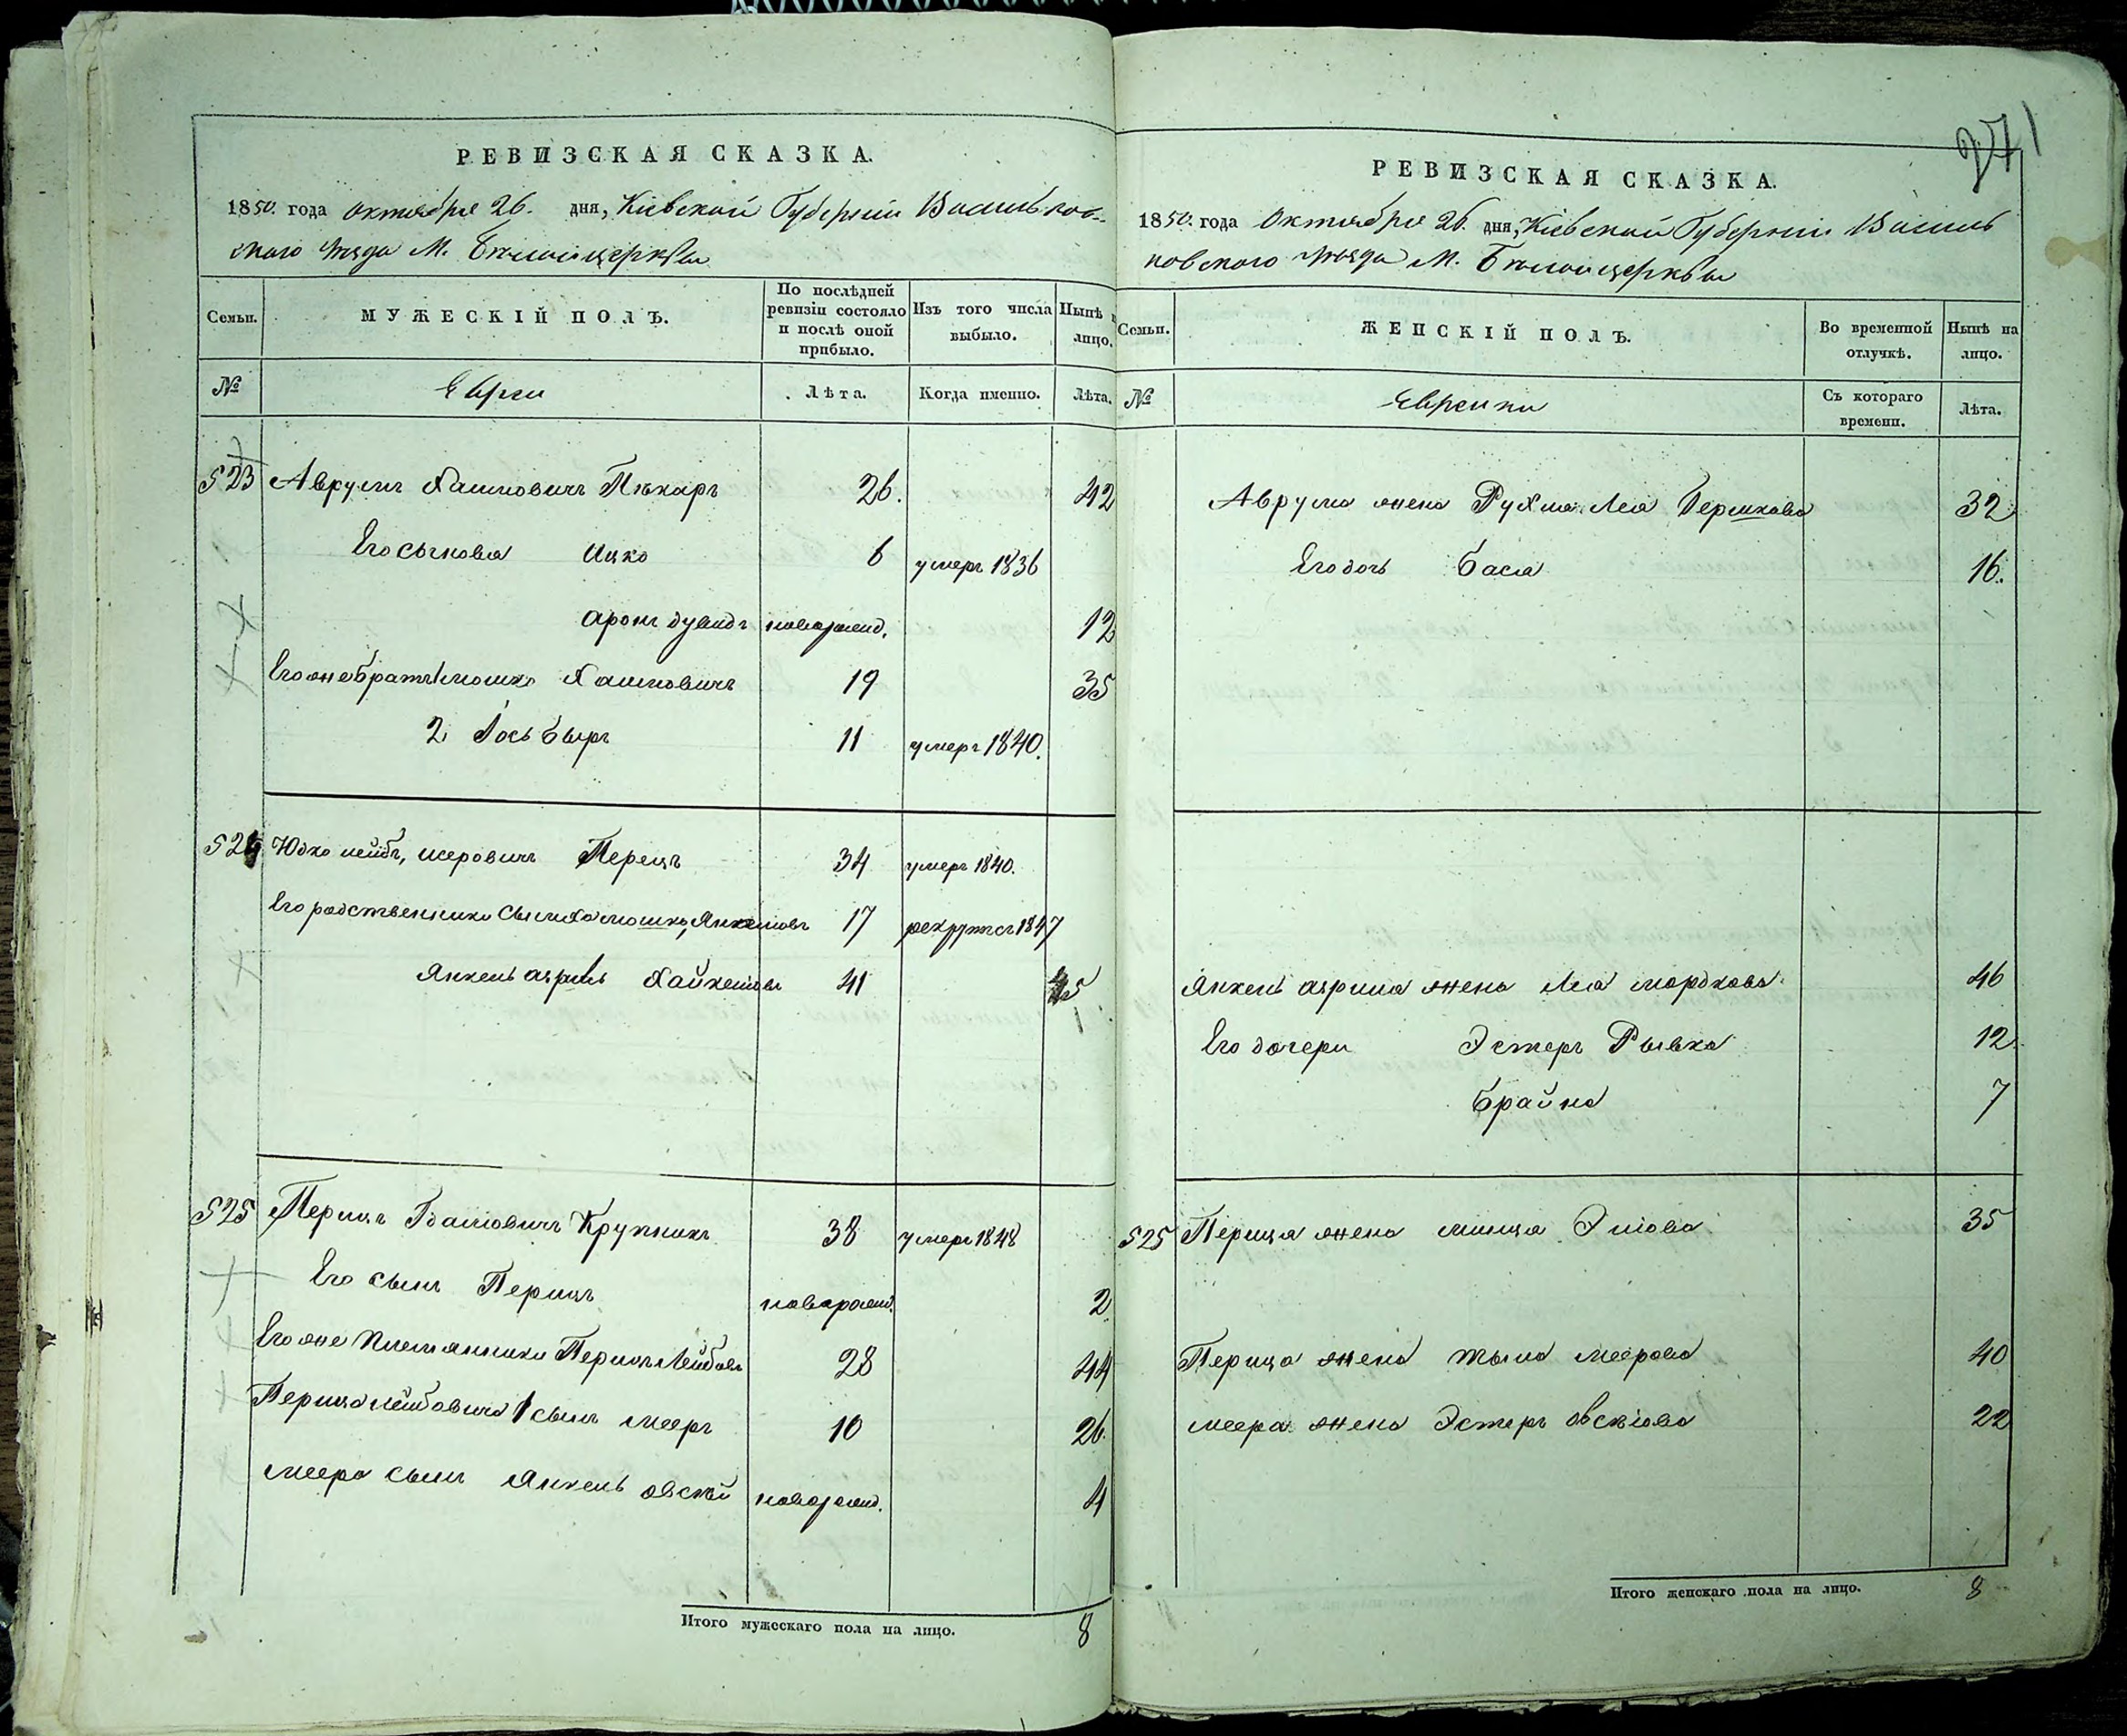 271
РЕВИЗСКАЯ СКАЗКА.
1850. года октября 26. дня, Кіевской Губерніи Васильков-
скаго Уѣзда М. Бѣлой церкви
Семьи. МУЖЕСКІЙ ПОЛЪ. По послѣдней ревизіи состояло и послѣ оной прибыло. Изъ того числа выбыло. Нынѣ лицо.
№ Евреи Лѣта. Когда именно. Лѣта.
523 Аврумъ Хаимовичъ Пекаръ 26. 42
Его сыновья Ицко 6 умеръ 1836
Аронъ дувидъ новорожд. 12
Его же братъ 1 мошко Хаимовичъ 19 35
2 Іось берг 11 умеръ 1840.
524 Юдко лейбъ, меровичъ Перецъ 34 умеръ 1840.
Его родственники мошко, Янкелювъ 17 рекрутъ 1847
Янкель 41 45
525 Перецъ Крупникъ 38 умеръ 1848
Его сынъ Перецъ новорожд. 2
Его же племянники Перецъ Лейбовъ 28 44
Переца лейбовича 1 сынъ мееръ 10 26.
меера сынъ Янкель овсѣй новорожд. 4
Итого мужескаго пола на лицо. 8
РЕВИЗСКАЯ СКАЗКА.
1850. года Октября 26. дня, Кіевской Губерніи Василь
ковскаго Уѣзда М. Бѣлой церкви
Семьи. ЖЕНСКІЙ ПОЛЪ. Во временной отлучкѣ. Нынѣ на лицо.
№ Еврейки Съ котораго времени. Лѣта.
Аврума жена Рухля Лея Бершкова 32
Его дочь бася 16.
Янкель жена Лея мордкова. 46
Его дочери Эстеръ Рывка 12
брайна 7
525 Переца жена минця 35
Переца жена меерова 40
меера жена Эстеръ овсѣіова 22
Итого женскаго пола на лицо. 8